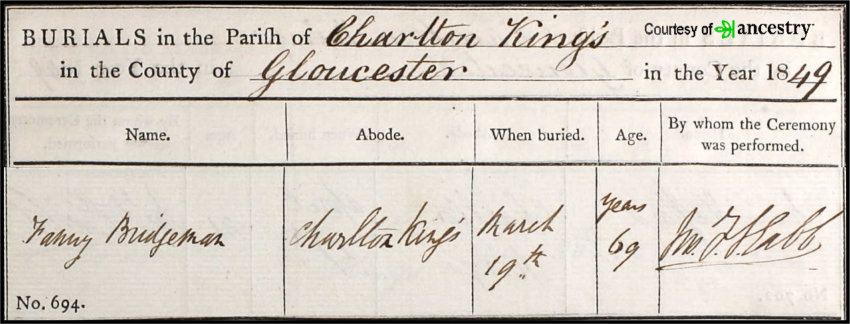 BURIALS in the Parish of Charlton King's
Courtesy of ancestry
in the County of Gloucester in the Year 1849
Name. Abode. When buried. Age. By whom the Ceremony
was performed.
years
Fanny Bridgeman Charlton King's March 69
19th
No. 694.